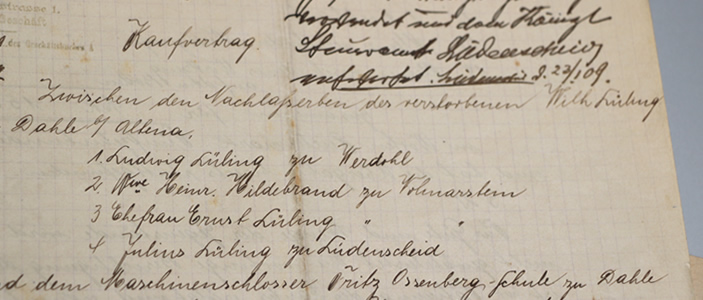 Strasse 1.
Geschäft
verwendet und dem Königl
Steueramt Lüdenscheid
Kaufvertrag.
d. 23/1 09.
Zwischen den Nachlaßerben des verstorbenen Wilh Lüling
Dahle b/ Altena.
1. Ludwig Lüling zu Werdohl
2. Wwe Heinr. Hildebrand zu Volmarstein
3 Ehefrau Ernst Lüling " "
4 Julius Lüling zu Lüdenscheid
dem Maschinenschlosser Fritz Ossenberg-Schule zu Dahle